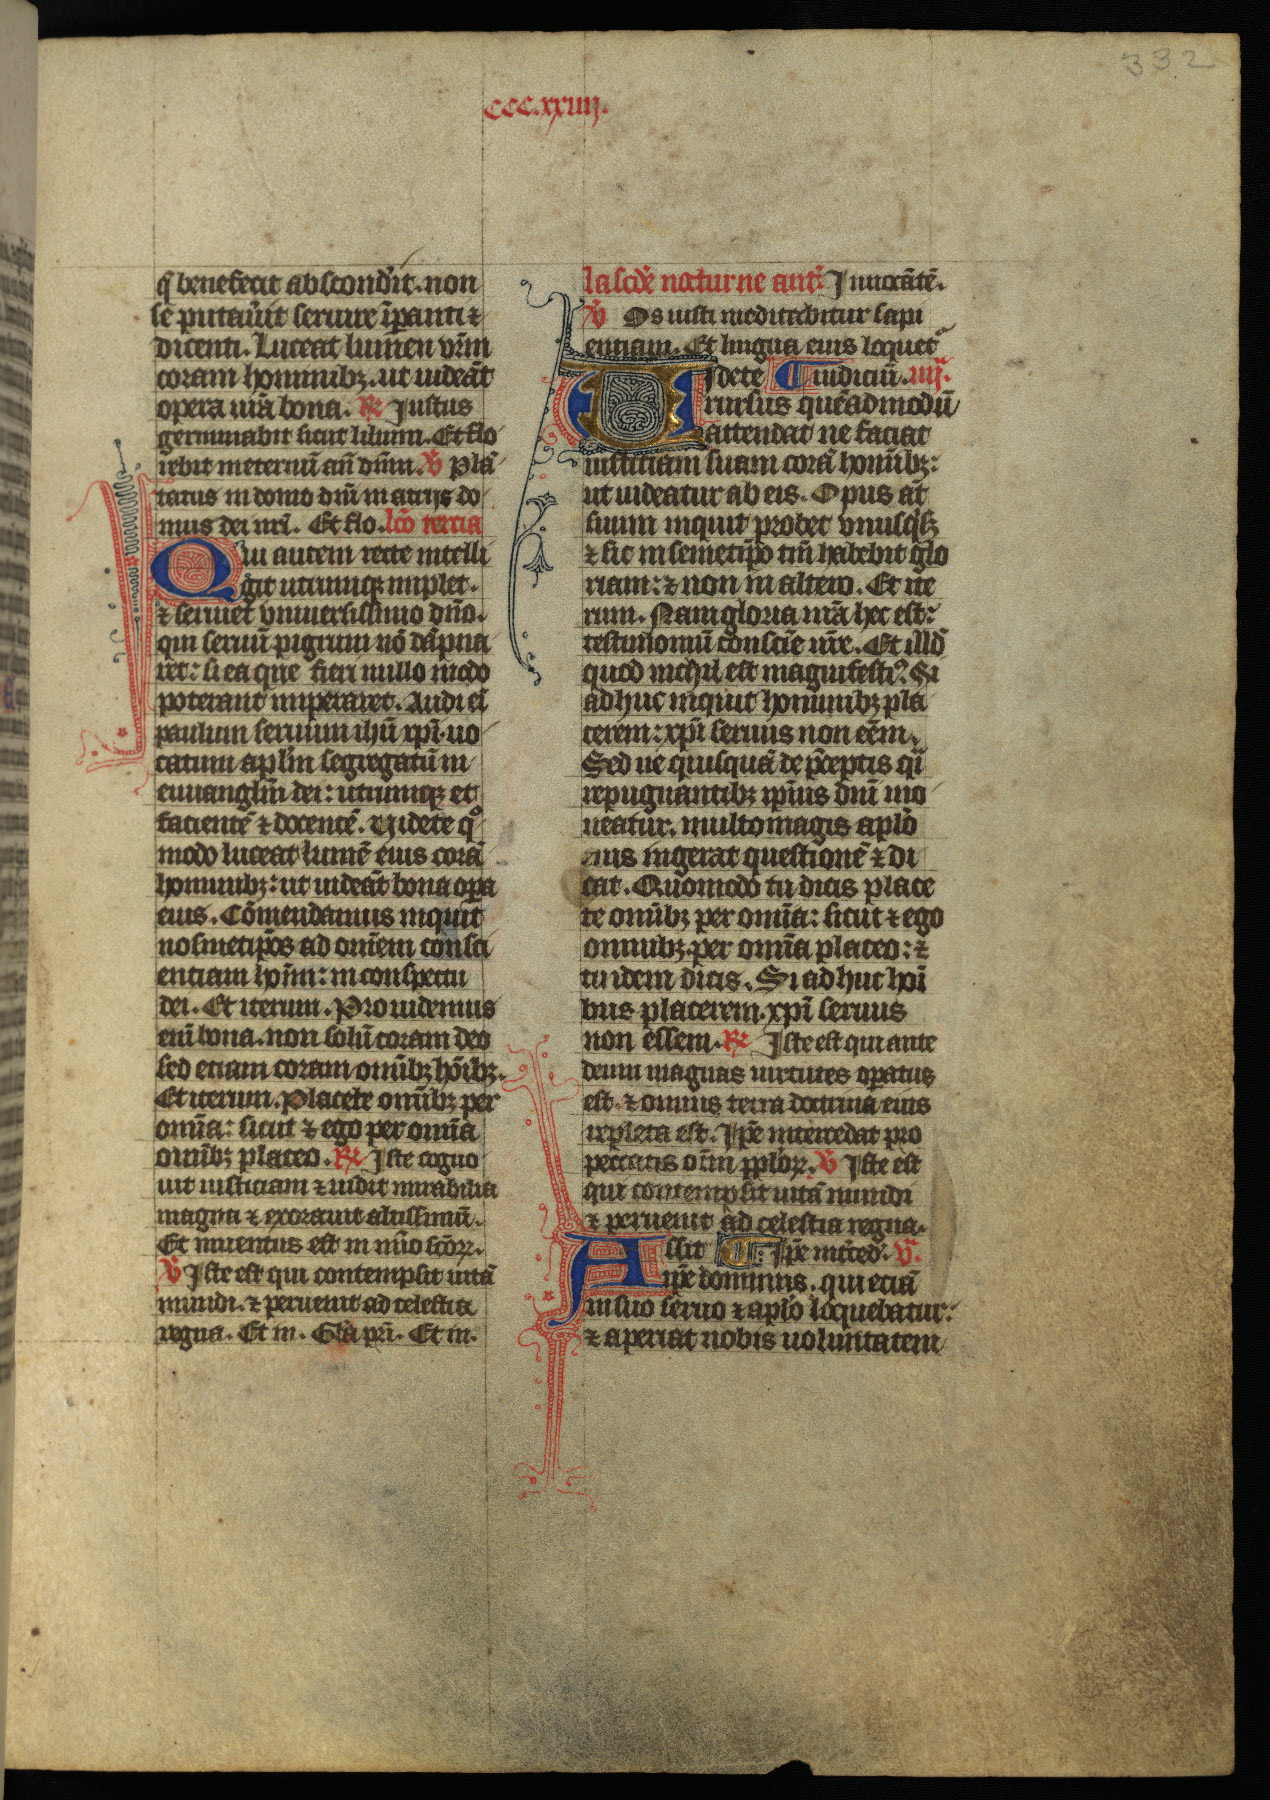 332
CCC.xxiiij.
q̄ benefecit abscond̉it. non
se putau̅it seruire īpanti ⁊
dicenti. Luceat lumen vr̄m
coram hominibꝫ. ut uideāt
opera ur̄a bona. ℟ Iustus
germinabit sicut lilium. Et flo
rebit in eternū an̄ dn̄m. ℣ Plā
tatus in domo dn̄i in atrijs do
mus dei nr̄i. Et flo. lc̄o tertia
Qui autem recte intelli
git utrumqꝫ implet.
⁊ seruiet vniuersissimo dn̄o.
qui seruū pigrum nō dāpna
ret: si ea que fieri nullo modo
poterant imperaret. Audi eī
paulum seruum ihū xp̄i. uo
catum apl̄m segregatū in
euuanglīm dei: utrumqꝫ et
facientē ⁊ docentē. Uidete qͦ
modo luceat lumē eius corā
hominibꝫ: ut uideāt bona oꝑa
eius. Cōmendamus inquit
nosmetip̄os ad omēm consci
entiam ho̅im: in conspectu
dei. Et iterum. Prouidemus
enī bona. non solū coram deo
sed etiam coram omībꝫ hōībꝫ.
Et iterum. Placete omībꝫ per
omīa: sicut ⁊ ego per omīa
omībꝫ placeo. ℟ Iste cogno
uit iusticiam ⁊ uidit mirabilia
magna ⁊ exorauit altissimū.
Et inuentus est in nūo sc̄oꝝ.
℣ Iste est qui contempsit uitā
mundi. ⁊ peruenit ad celestia
regna. Et in. Glā pr̄i. Et in.
la scd̄e nocturne ant̄. In uocātē.
℣ Os iusti meditabitur sapi
entiam. Et lingua eius loquet᷑
Uidete iudiciū. iiij.
rursus quēadmodū
attendat ne faciat
iustitiam suam corā homībꝫ:
ut uideatur ab eis. Opus at̄
suum inquit probet vnusq̉sqꝫ
⁊ sic in semetip̄o tm̄ habebit glo
riam: ⁊ non in altero. Et ite
rum. Nam gloria nr̄a hec est:
testimoniū consciē nr̄e. Et illd̄
quod nichil est magnifestiꝰ. Si
adhuc inquit hominibꝫ pla
cerem: xp̄i seruus non eēm.
Sed ne quisquā de p̄ceptis qͣi
repugnantibꝫ ip̄ius dnī mo
ueatur. multo magis aplō
eius ingerat questionē ⁊ di
cat. Quomodo tu dicis place
te omībꝫ per omīa: sicut ⁊ ego
omnibꝫ. per omīa placeo: ⁊
tu idem dicis. Si adhuc hoī
bus placerem. xp̄i seruus
non essem. ℟ Iste est qui ante
deum magnas uirtutes oꝑatus
est. ⁊ omnis terra doctrina eius
repleta est. Ip̄e intercedat pro
peccatis oīm ꝑploꝝ. ℣ Iste est
qui contempsit uitā mundi
⁊ peruenit ad celestia regna.
Assit Ip̄e int̄ced. v.
ip̄e dominus. qui eciā
in suo seruo ⁊ aplō loquebatur:
⁊ aperiat nobis uoluntatem